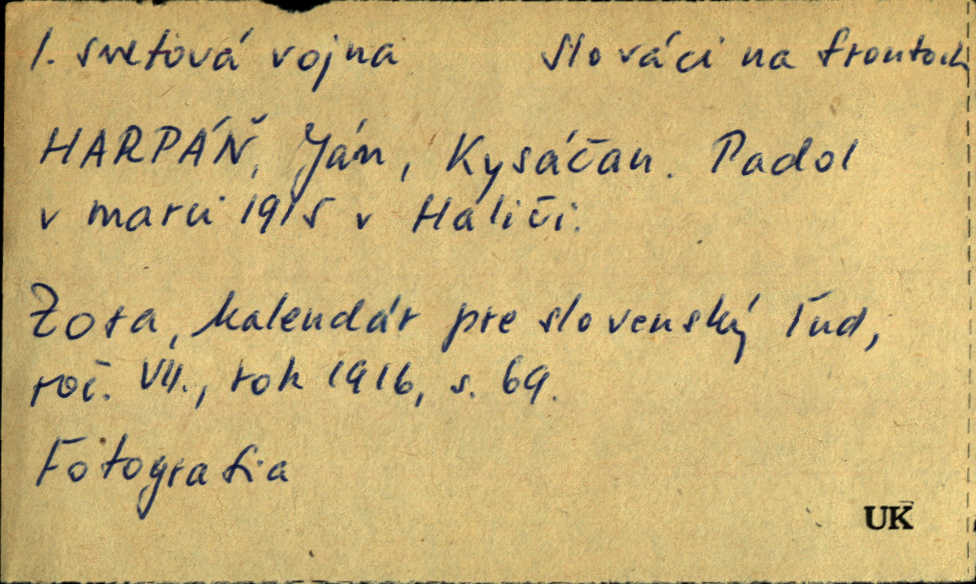 1. svetová vojna Slováci na frontoch
HARPÁŇ, Ján, Kysáčan. Padol
v marci 1915 v Haliči.
Zora, kalendár pre slovenský ľud,
roč. VII., rok 1916, s. 69.
Fotografia
UK